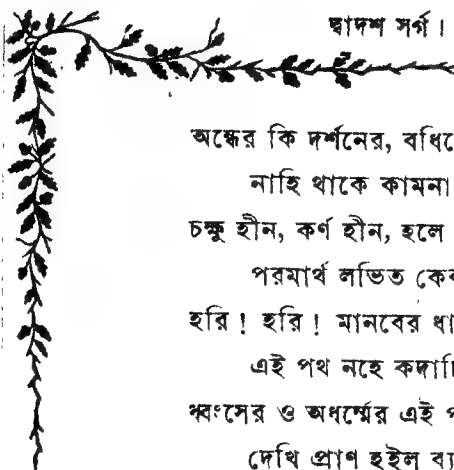 দ্বাদশ সর্গ।
অন্ধের কি দর্শনের,
নাহি থাকে কামনা
চক্ষু হীন, কর্ণ হীন, হলে
পরমার্থ লভিত
হরি! হরি! মানবের
এই পথ নহে
ধ্বংসের ও অধর্ম্মের এই
দেখি প্রাণ হইল